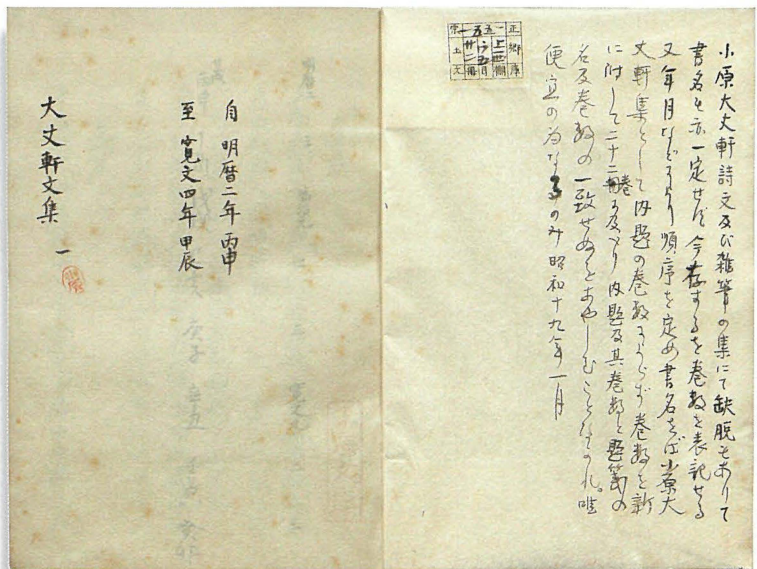 小原大丈軒詩文及び雑筆の集にて缺脱もありて
書名も亦一定せず今存するを巻数を表記せる
又年月などにより順序を定め書名をば小原大
丈軒集として内題の巻数によらず巻数を新
に附して二十二巻に及べり内題及其巻数と題簽の
名及巻数の一致せぬをあやしむことなかれ。唯
便宜の為なるのみ昭和十九年一月
自 明暦二年 丙申
至 寛文四年 甲辰
大丈軒文集 一